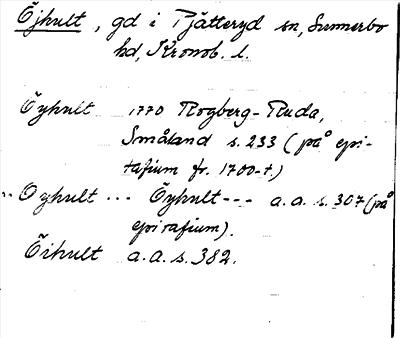 Öjhult, gd i Pjätteryd sn, Sunnerbo
hd, Kronob. l.
Öyhult 1770 Rogberg-Ruda,
Småland s. 233 (på epi-
tafium fr. 1700-t.)
Oyhult ... Öyhult --- a.a. s. 307 (på
epitafium).
Öihult a.a. s. 382.